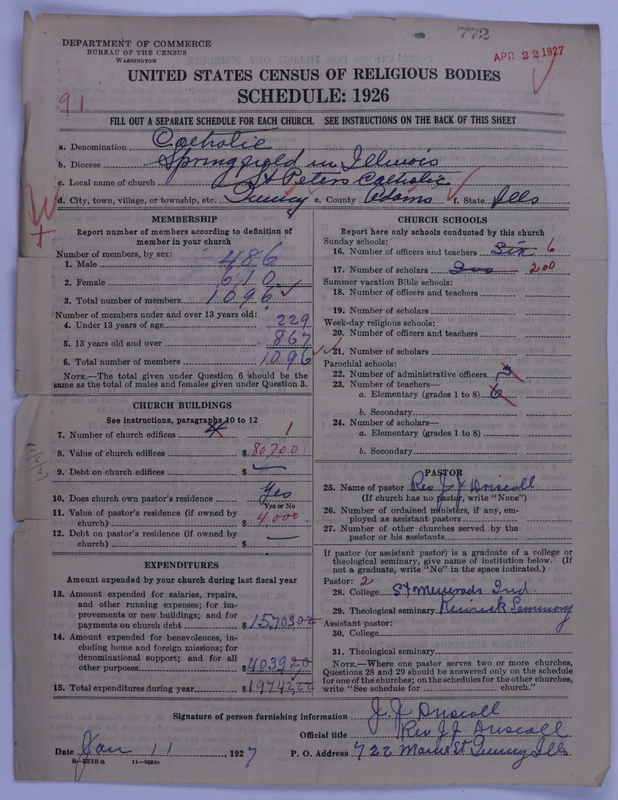 772
APR 22 1927
DEPARTMENT OF COMMERCE
BUREAU OF THE CENSUS
WASHINGTON
UNITED STATES CENSUS OF RELIGIOUS BODIES
SCHEDULE: 1926
91
FILL OUT A SEPARATE SCHEDULE FOR EACH CHURCH. SEE INSTRUCTIONS ON THE BACK OF THIS SHEET
a. Denomination Catholic
b. Diocese Springfield in Illinois
c. Local name of church St Peters Catholic
d. City, town, village, or township, etc. Quincy e. County Adams f. State Ills
MEMBERSHIP
Report number of members according to definition of
member in your church
Number of members, by sex:
1. Male 486
2. Female 610
3. Total number of members 1096
Number of members under and over 13 years old:
4. Under 13 years of age 229
5. 13 years old and over 867
6. Total number of members 1096
NOTE.—The total given under Question 6 should be
the same as the total of males and females given under Question 3.
CHURCH BUILDINGS
See instructions, paragraphs 10 to 12
7. Number of church edifices 4 1
8. Value of church edifices $ 80,700
9. Debt on church edifices $ —
10. Does church own pastor's residence Yes
Yes or No
11. Value of pastor's residence (if owned by
church) $ 4000
12. Debt on pastor's residence (if owned by
church) $ —
EXPENDITURES
Amount expended by your church during last fiscal year
13. Amount expended for salaries, repairs,
and other running expenses; for im-
provements or new buildings; and for
payments on church debt $ 15,703.02
14. Amount expended for benevolences, in-
cluding home and foreign missions; for
denominational support; and for all
other purposes $ 4039.20
15. Total expenditures during year $ 19742.22
CHURCH SCHOOLS
Report here only schools conducted by this church
Sunday schools:
16. Number of officers and teachers Six 6
17. Number of scholars 200 200
Summer vacation Bible schools:
18. Number of officers and teachers
19. Number of scholars
Week-day religious schools:
20. Number of officers and teachers
21. Number of scholars
Parochial schools:
22. Number of administrative officers
23. Number of teachers—
a. Elementary (grades 1 to 8) 6
b. Secondary
24. Number of scholars—
a. Elementary (grades 1 to 8)
b. Secondary
PASTOR
25. Name of pastor Rev. J. J. Driscoll
(If church has no pastor, write "None")
26. Number of ordained ministers, if any, em-
ployed as assistant pastors
27. Number of other churches served by the
pastor or his assistants
If pastor (or assistant pastor) is a graduate of a college or
theological seminary, give name of institution below. (If
not a graduate, write "No" in the space indicated.)
Pastor: 2
28. College St Meinrads Ind.
29. Theological seminary Kenrick Seminary
Assistant pastor:
30. College
31. Theological seminary
NOTE.—Where one pastor serves two or more churches,
Questions 28 and 29 should be answered only on the schedule
for one of the churches; on the schedules for the other churches,
write "See schedule for church."
Signature of person furnishing information J. J. Driscoll
Official title Rev. J. J. Driscoll
Date Jan 11, 1927 P. O. Address 722 Maine St Quincy Ills
8—5518a 11—9684c